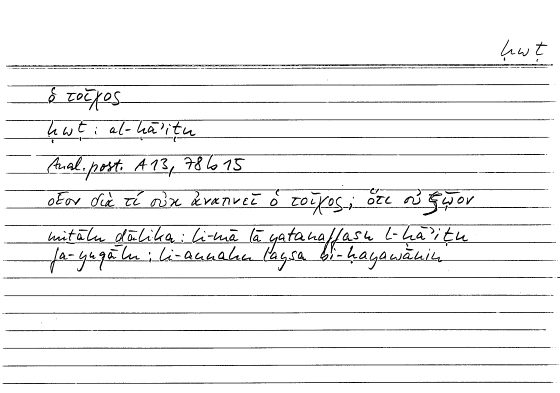 ḥwṭ
ὁ τοῖχος
ḥwṭ : al-ḥāʾiṭu
Anal. post. A 13, 78 b 15
οἷον διὰ τί οὐκ ἀναπνεῖ ὁ τοῖχος; ὅτι οὐ ζῷον
miṯālu ḏālika : li-mā lā yatanaffasu l-ḥāʾiṭu
fa-yuqālu : li-annahu laysa bi-ḥayawānin